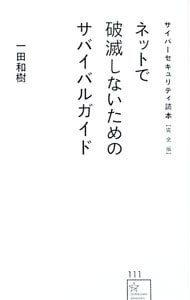 サイバーセキュリティ読本【完全版】
ネットで
破滅しないための
サバイバルガイド
一田和樹
111